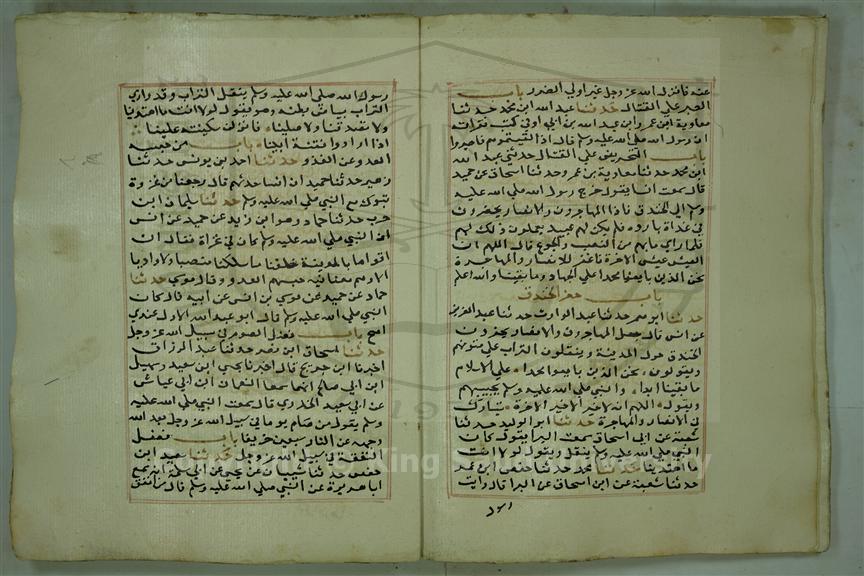 عنه فانزل الله عز وجل غير اولي الضرر باب
الصبر علي القتال حدثنا عبد الله ابن محمد حدثنا
معاوية ابن عمرو ابن عبد الله بن ابي اوفي كتب فقراته
ان رسول الله صلي الله عليه وسلم قال اذا لقيتموهم فاصبروا
باب التحريض علي القتال حدثني عبد الله
ابن محمد حدثنا معاوية بن عمرو حدثنا اسحاق عن حميد
قال سمعت انسا يقول خرج رسول الله صلي الله عليه
وسلم الي الخندق فاذا المهاجرون والانصار يحفرون
في غداة باردة فلم يكن لهم عبيد يعملون ذلك لهم
فلما راي ما بهم من النصب والجوع قال اللهم ان
العيش عيش الاخرة فاغفر للانصار والمهاجرة
نحن الذين بايعوا محمدا علي الجهاد ما بقينا والله اعلم
باب حفر الخندق
حدثنا ابو معمر حدثنا عبد الوارث حدثنا عبد العزيز
عن انس قال جعل المهاجرون والانصار يحفرون
الخندق حول المدينة وينقلون التراب علي متونهم
ويقولون نحن الذين بايعوا محمدا علي الاسلام
ما بقينا ابدا والنبي صلي الله عليه وسلم يجيبهم
ويقول اللهم انه لا خير الا خير الاخرة فبارك
في الانصار والمهاجرة حدثنا ابو الوليد حدثنا
شعبة عن ابي اسحاق سمعت البرا يقول كان
النبي صلي الله عليه وسلم ينقل ويقول لولا انت
ما اهتدينا حدثنا حفص ابن عمر
حدثنا شعبة عن ابن اسحاق عن البرا قال رايت
رسول
رسول الله صلي الله عليه وسلم ينقل التراب وقد واري
التراب بياض بطنه وهو يقول لولا انت ما اهتدينا
ولا تصدقنا ولا صلينا فانزلن سكينة علينا
اذا ارادوا فتنة ابينا باب من حبسه
العدو عن الغزو حدثنا احمد بن يونس حدثنا
زهير حدثنا حميد ان انسا حدثهم قال رجعنا من غزوة
تبوك مع النبي صلي الله عليه وسلم حدثنا سليمان ابن
حرب حدثنا حماد وهو ابن زيد عن حميد عن انس
ان النبي صلي الله عليه وسلم كان في غزاة فقال ان
اقواما بالمدينة خلفنا ما سلكنا شعبا ولا واديا
الا وهم معنا فيه حبسهم العدو وقال موسي حدثنا
حماد عن حميد عن موسي بن انس عن ابيه قال كان
النبي صلي الله عليه وسلم قال ابو عبد الله الاول عندي
اصح باب فضل الصوم في سبيل الله عز وجل
حدثنا اسحاق ابن نصر حدثنا عبد الرزاق
اخبرنا ابن جريج قال اخبرنا يحيي ابن سعيد وسهيل
ابن ابي صالح انهما سمعا النعمان ابن ابي عياش
عن ابي سعيد الخدري قال سمعت النبي صلي الله عليه
وسلم يقول من صام يوما في سبيل الله عز وجل بعد الله
وجهه عن النار سبعين خريفا باب فضل
النفقة في سبيل الله عز وجل حدثنا سعيد ابن
حفص حدثنا شيبان عن يحيي عن ابي سلمة انه سمع
ابا هريرة عن النبي صلي الله عليه وسلم قال من انفق